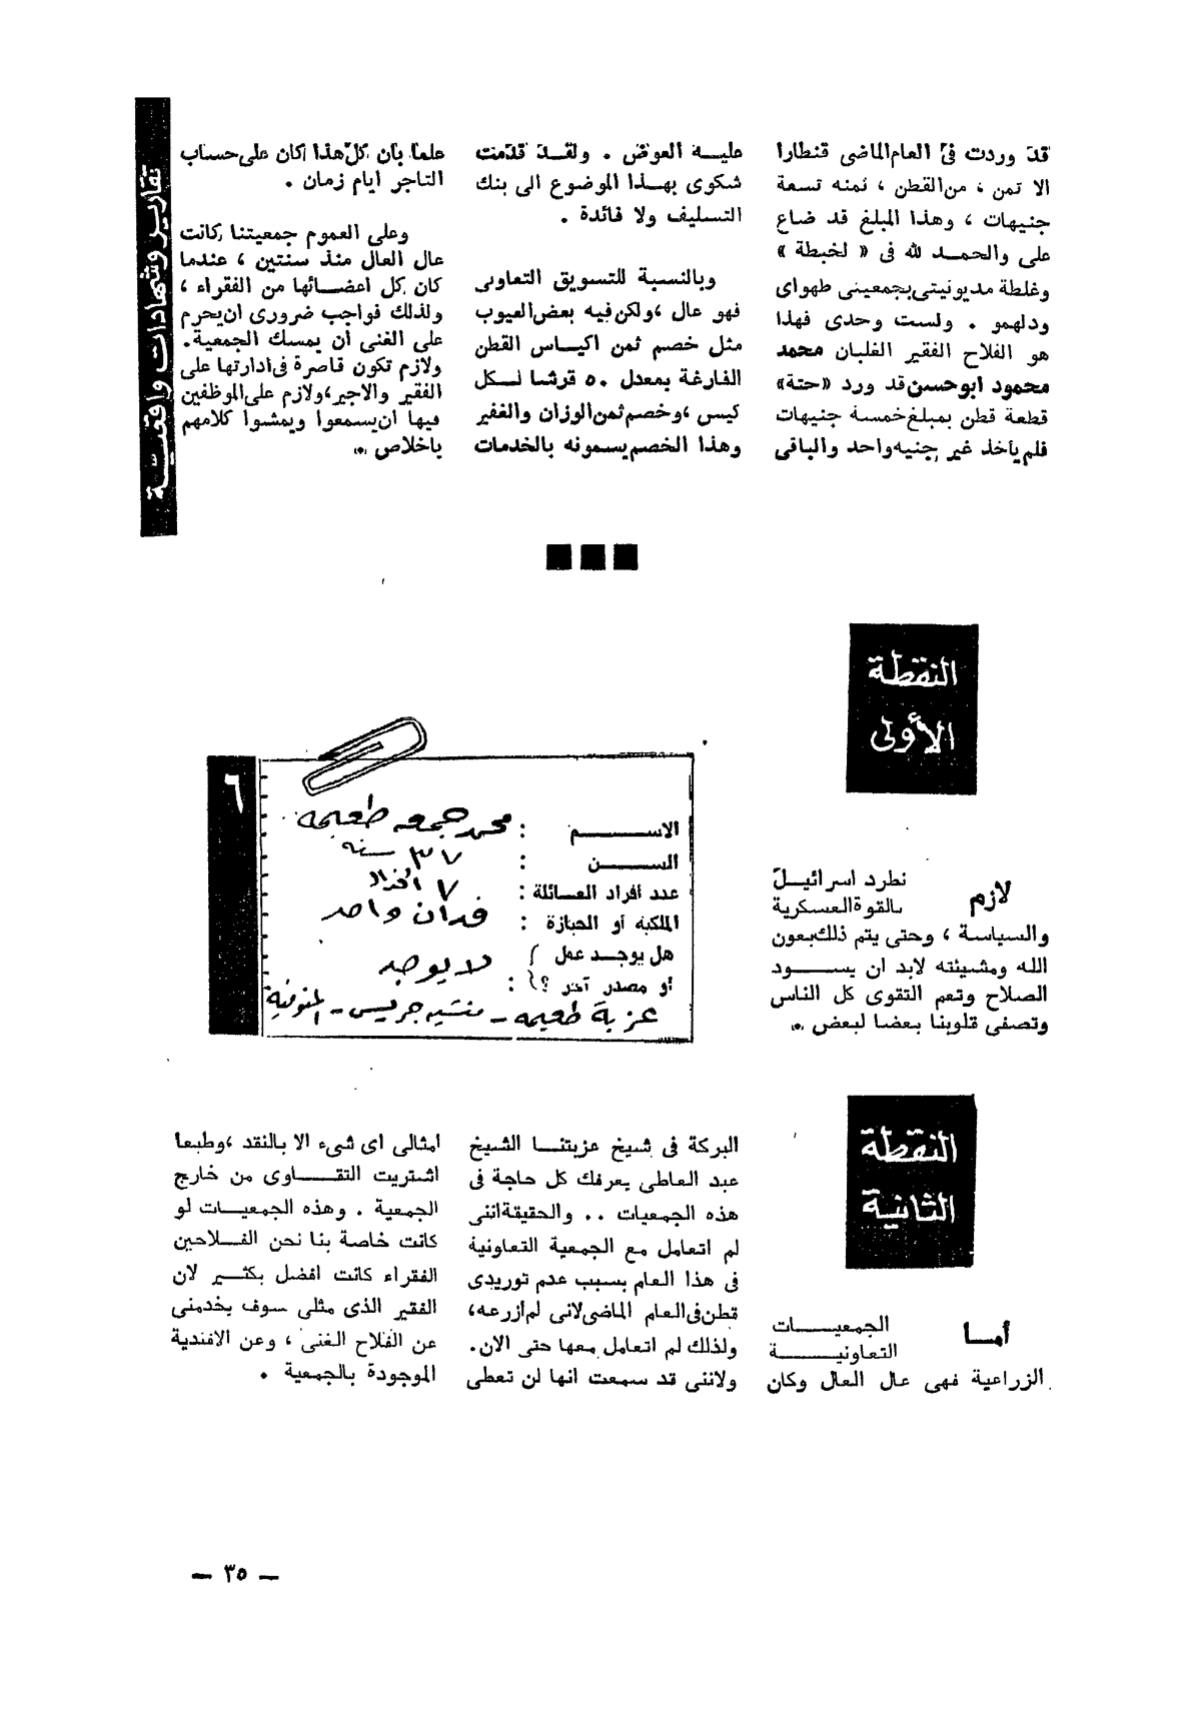 تقارير وشهادات واقعية
قد وردت فى العام الماضى قنطارا
الا تمن ، من القطن ، ثمنه تسعة
جنيهات ، وهذا المبلغ قد ضاع
على والحمــد لله فى « لخبطة »
وغلطة مديونيتى بجمعيتى طهواى
ودلهمو . ولست وحدى فهذا
هو الفلاح الفقير الغلبان محمد
محمود ابو حسن قد ورد «حتة»
قطعة قطن بمبلغ خمسة جنيهات
فلم يأخذ غير جنيه واحد والباقى
عليــه العوض . ولقــد قدمت
شكوى بهــذا الموضوع الى بنك
التسليف ولا فائدة .
وبالنسبة للتسويق التعاونى
فهو عال ، ولكن فيه بعض العيوب
مثل خصم ثمن اكيــاس القطن
الفارغة بمعدل ٥٠ قرشا لــكل
كيس ، وخصم ثمن الوزان والغفير
وهذا الخصم يسمونه بالخدمات
علما بأن كل هذا كان على حساب
التاجر ايام زمان .
وعلى العموم جمعيتنا كانت
عال العال منذ سنتين ، عندما
كان كل اعضــائها من الفقراء ،
ولذلك فواجب ضرورى ان يحرم
على الغنى أن يمسك الجمعية .
ولازم تكون قاصرة فى ادارتها على
الفقير والاجير ، ولازم على الموظفين
فيها ان يسمعوا ويمشوا كلامهم
باخلاص .
النقطة
الأولى
٦
الاســـــم : محمد جمعه طعيمه
الســـــن : ٣٧ سنه
عدد أفراد العــائلة : ٧ أفراد
الملكية أو الحيازة : فدان واحد
هل يوجــد عمل
أو مصدر آخر ؟ : لا يوجد
عزبة طعيمه - منشيه جريس - المنوفية
لازم نطرد اسرائيــل
بالقوة العسكرية
والسياسة ، وحتى يتم ذلك بعون
الله ومشيئته لابد ان يســـود
الصلاح وتعم التقوى كل الناس
وتصفى قلوبنا بعضا لبعض .
النقطة
الثانية
أمــا الجمعيــــات
التعاونيــــة
الزراعية فهى عال العال وكان
البركة فى شيخ عزبتنــا الشيخ
عبد العاطى يعرفك كل حاجة فى
هذه الجمعيات . . والحقيقة اننى
لم اتعامل مع الجمعية التعاونية
فى هذا العام بسبب عدم توريدى
قطن فى العام الماضى لانى لم ازرعه ،
ولذلك لم اتعامل معها حتى الان .
ولاننى قد سمعت انها لن تعطى
امثالى اى شىء الا بالنقد ، وطبعا
اشتريت التقــاوى من خارج
الجمعية . وهذه الجمعيــات لو
كانت خاصة بنا نحن الفــلاحين
الفقراء كانت افضل بكثــير لان
الفقير الذى مثلى سوف يخدمنى
عن الفلاح الغنى ، وعن الافندية
الموجودة بالجمعية .
— ٣٥ —